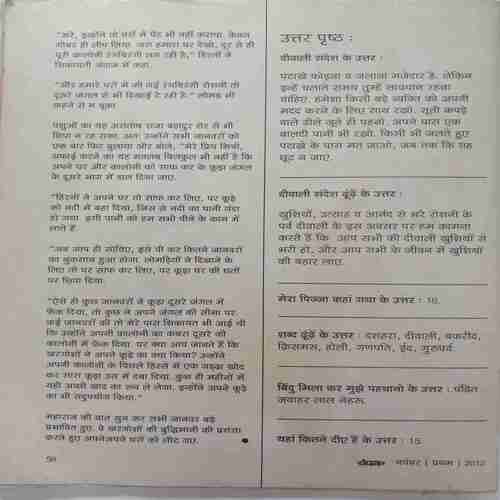 "अरे, इन्होंने तो घरों में पेंट भी नहीं कराया. केवल
गोबर ही लीप लिया. जरा हमारा घर देखो, दूर से ही
पूरी कालोनी रंगबिरंगी लग रही है," हिरनी ने
शिकायती अंदाज में कहा.
"और हमारे घरों में की गई रंगबिरंगी रोशनी तो
दूसरे जंगल से भी दिखाई दे रही है." लोमड़ भी
कहने से न चूका.
पशुओं का यह असंतोष राजा बहादुर शेर से भी
छिपा न रह सका. अतः उन्होंने सभी जानवरों को
एक बार फिर बुलाया और बोले, "मेरे प्रिय मित्रो,
सफाई करने का यह मतलब बिलकुल भी नहीं है कि
अपने घर और कालोनी को साफ कर के कूड़ा जंगल
के दूसरे भाग में डाल दिया जाए.
"हिरनों ने अपने घर तो साफ कर लिए, पर कूड़े
को नदी में बहा दिया, जिस से नदी का पानी गंदा
हो गया. इसी पानी को हम सभी पीने के काम में
लाते हैं.
"अब आप ही सोचिए, इसे पी कर कितने जानवरों
का नुकसान हुआ होगा. लोमड़ियों ने दिखाने के
लिए तो घर साफ कर लिए, पर कूड़ा घर की छतों
पर छिपा दिया.
"ऐसे ही कुछ जानवरों ने कूड़ा दूसरे जंगल में
फेंक दिया, तो कुछ ने अपने जंगल की सीमा पर.
कई जानवरों की तो मेरे पास शिकायत भी आई थी
कि उन्होंने अपनी कालोनी का कचरा दूसरे की
कालोनी में फेंक दिया. पर क्या आप जानते हैं कि
खरगोशों ने अपने कूड़े का क्या किया? उन्होंने
अपनी कालोनी के पिछले हिस्से में एक गड्ढा खोद
कर सारा कूड़ा उस में दबा दिया. कुछ ही महीनों में
यही अपनी खाद का रूप ले लेगा. इन्होंने अपने कूड़े
का भी सदुपयोग किया."
महाराज की बात सुन कर सभी जानवर बड़े
प्रभावित हुए. वे खरगोशों की बुद्धिमानी की प्रशंसा
करते हुए अपनेअपने घरों को लौट गए.
50
उत्तर पृष्ठ :
दीवाली संदेश के उत्तर :
पटाखे फोड़ना व जलाना मजेदार है. लेकिन
इन्हें चलाते समय तुम्हें सावधान रहना
चाहिए. हमेशा किसी बड़े व्यक्ति को अपनी
मदद करने के लिए साथ रखो. सूती कपड़े
वाले ढीले जूते ही पहनो. अपने पास एक
बालटी पानी भी रखो. किसी भी जलते हुए
पटाखे के पास मत जाओ, जब तक कि वह
छूट न जाए.
दीवाली संदेश ढूंढ़ें के उत्तर :
खुशियों, उत्साह व आनंद से भरे रोशनी के
पर्व दीवाली के इस अवसर पर हम कामना
करते हैं कि आप सभी की दीवाली खुशियों से
भरी हो, और आप सभी के जीवन में खुशियों
की बहार लाए.
मेरा पिज्जा कहां गया के उत्तर : 10.
शब्द ढूंढ़ें के उत्तर : दशहरा, दीवाली, बकरीद,
क्रिसमस, होली, गणपति, ईद, गुरुपर्व.
बिंदु मिला कर मुझे पहचानो के उत्तर : पंडित
जवाहर लाल नेहरू.
यहां कितने दीए हैं के उत्तर : 15.
चंपक नवंबर ( प्रथम ) 2012